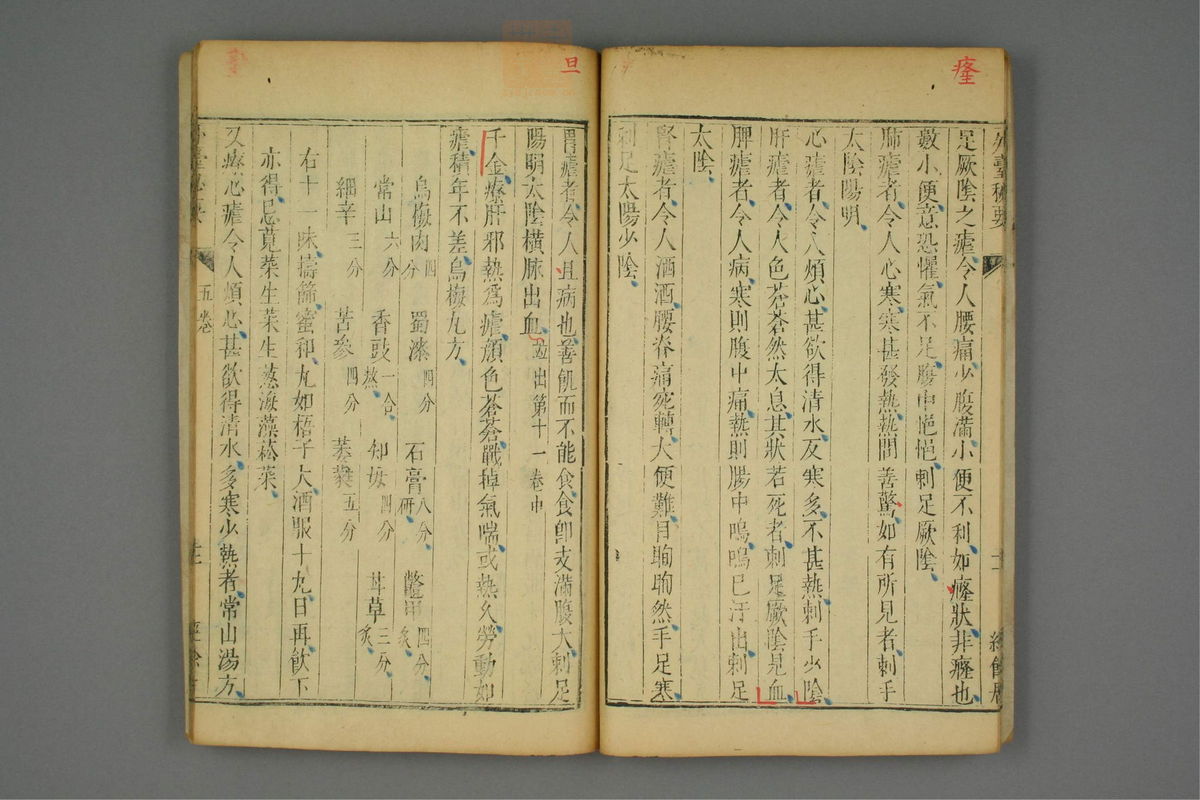 瘥
外臺秘要
足厥陰之瘧令人腰痛少腹滿小便不利如癃狀非癃也
數小便意恐懼氣不足腹中悒悒刺足厥陰
肺瘧者令人心寒寒甚發熱熱間善驚如有所見者刺手
太陰陽明
心瘧者令人煩心甚欲得清水反寒多不甚熱刺手少陰
肝瘧者令人色蒼蒼然太息其狀若死者刺足厥陰見血
脾瘧者令人病寒則腹中痛熱則腸中鳴鳴已汗出刺足
太陰
腎瘧者令人洒洒腰脊痛宛轉大便難目眴眴然手足寒
刺足太陽少陰
旦
胃瘧者令人且病也善飢而不能食食即支滿腹大刺足
陽明太陰橫脉出血並出第十一卷中
千金療肝邪熱爲瘧顏色蒼蒼戰掉氣喘或熱久勞動如
瘧積年不差烏梅丸方
烏梅肉四分 蜀漆四分 石膏八分研 鱉甲四分炙
常山六分 香豉一合熬 知母四分 甘草三分炙
細辛三分 苦參四分 葳蕤五分
右十一味擣篩蜜和丸如梧子大酒服十丸日再飲下
亦得忌莧菜生菜生葱海藻菘菜
又療心瘧令人煩心甚欲得清水多寒少熱者常山湯方
五卷